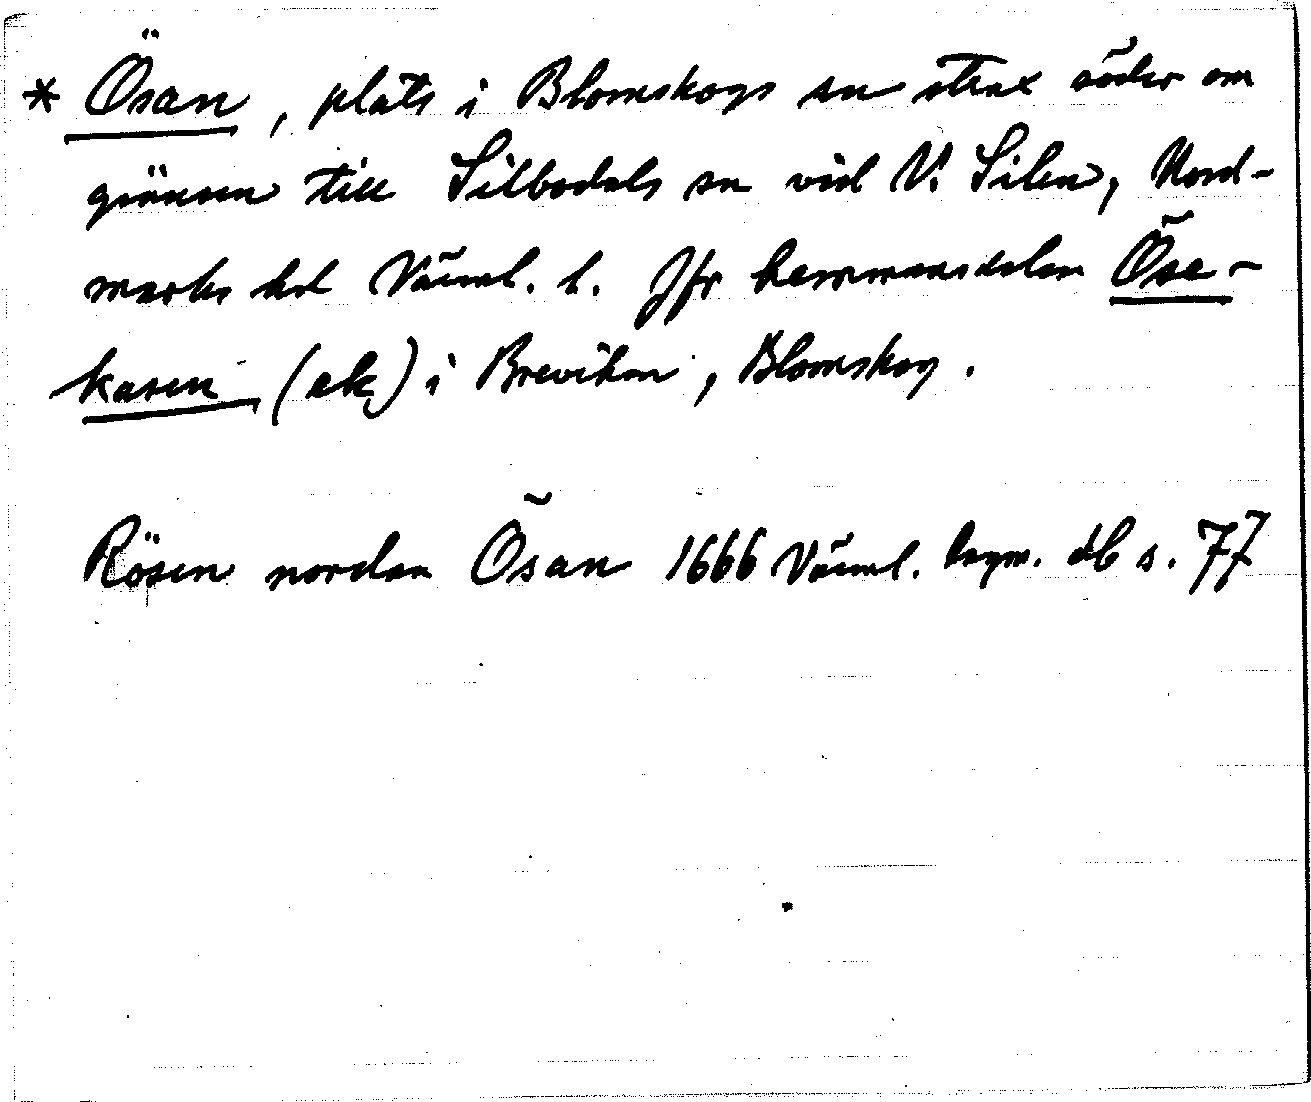 * Ösan, plats i Blomskogs sn strax söder om
gränsen till Silbodals sn vid V. Silen, Nord-
marks hd Värml. l. Jfr hemmansdelen Öse-
kasen (ek) i Breviken, Blomskog.
Rösen nordan Ösan 1666 Värml. lagm. db s. 77